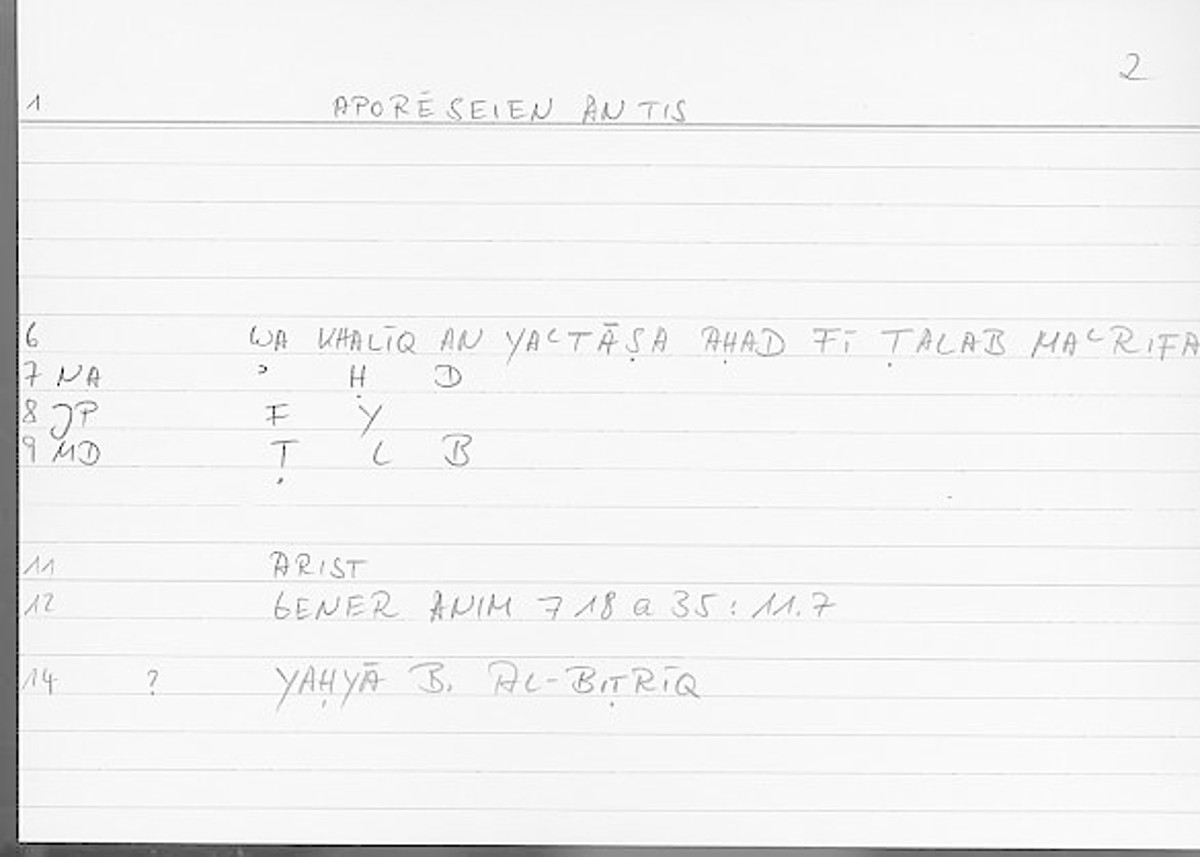 2
1 APORĒSEIEN AN TIS
6 WA KHALĪQ AN YAʿTĀṢA AḤAD FĪ ṬALAB MAʿRIFA
7 NA ʾ Ḥ D
8 JP F Y
9 MD Ṭ L B
11 ARIST
12 GENER ANIM 718 a 35 : 11.7
14 ? YAḤYĀ B. AL-BIṬRĪQ